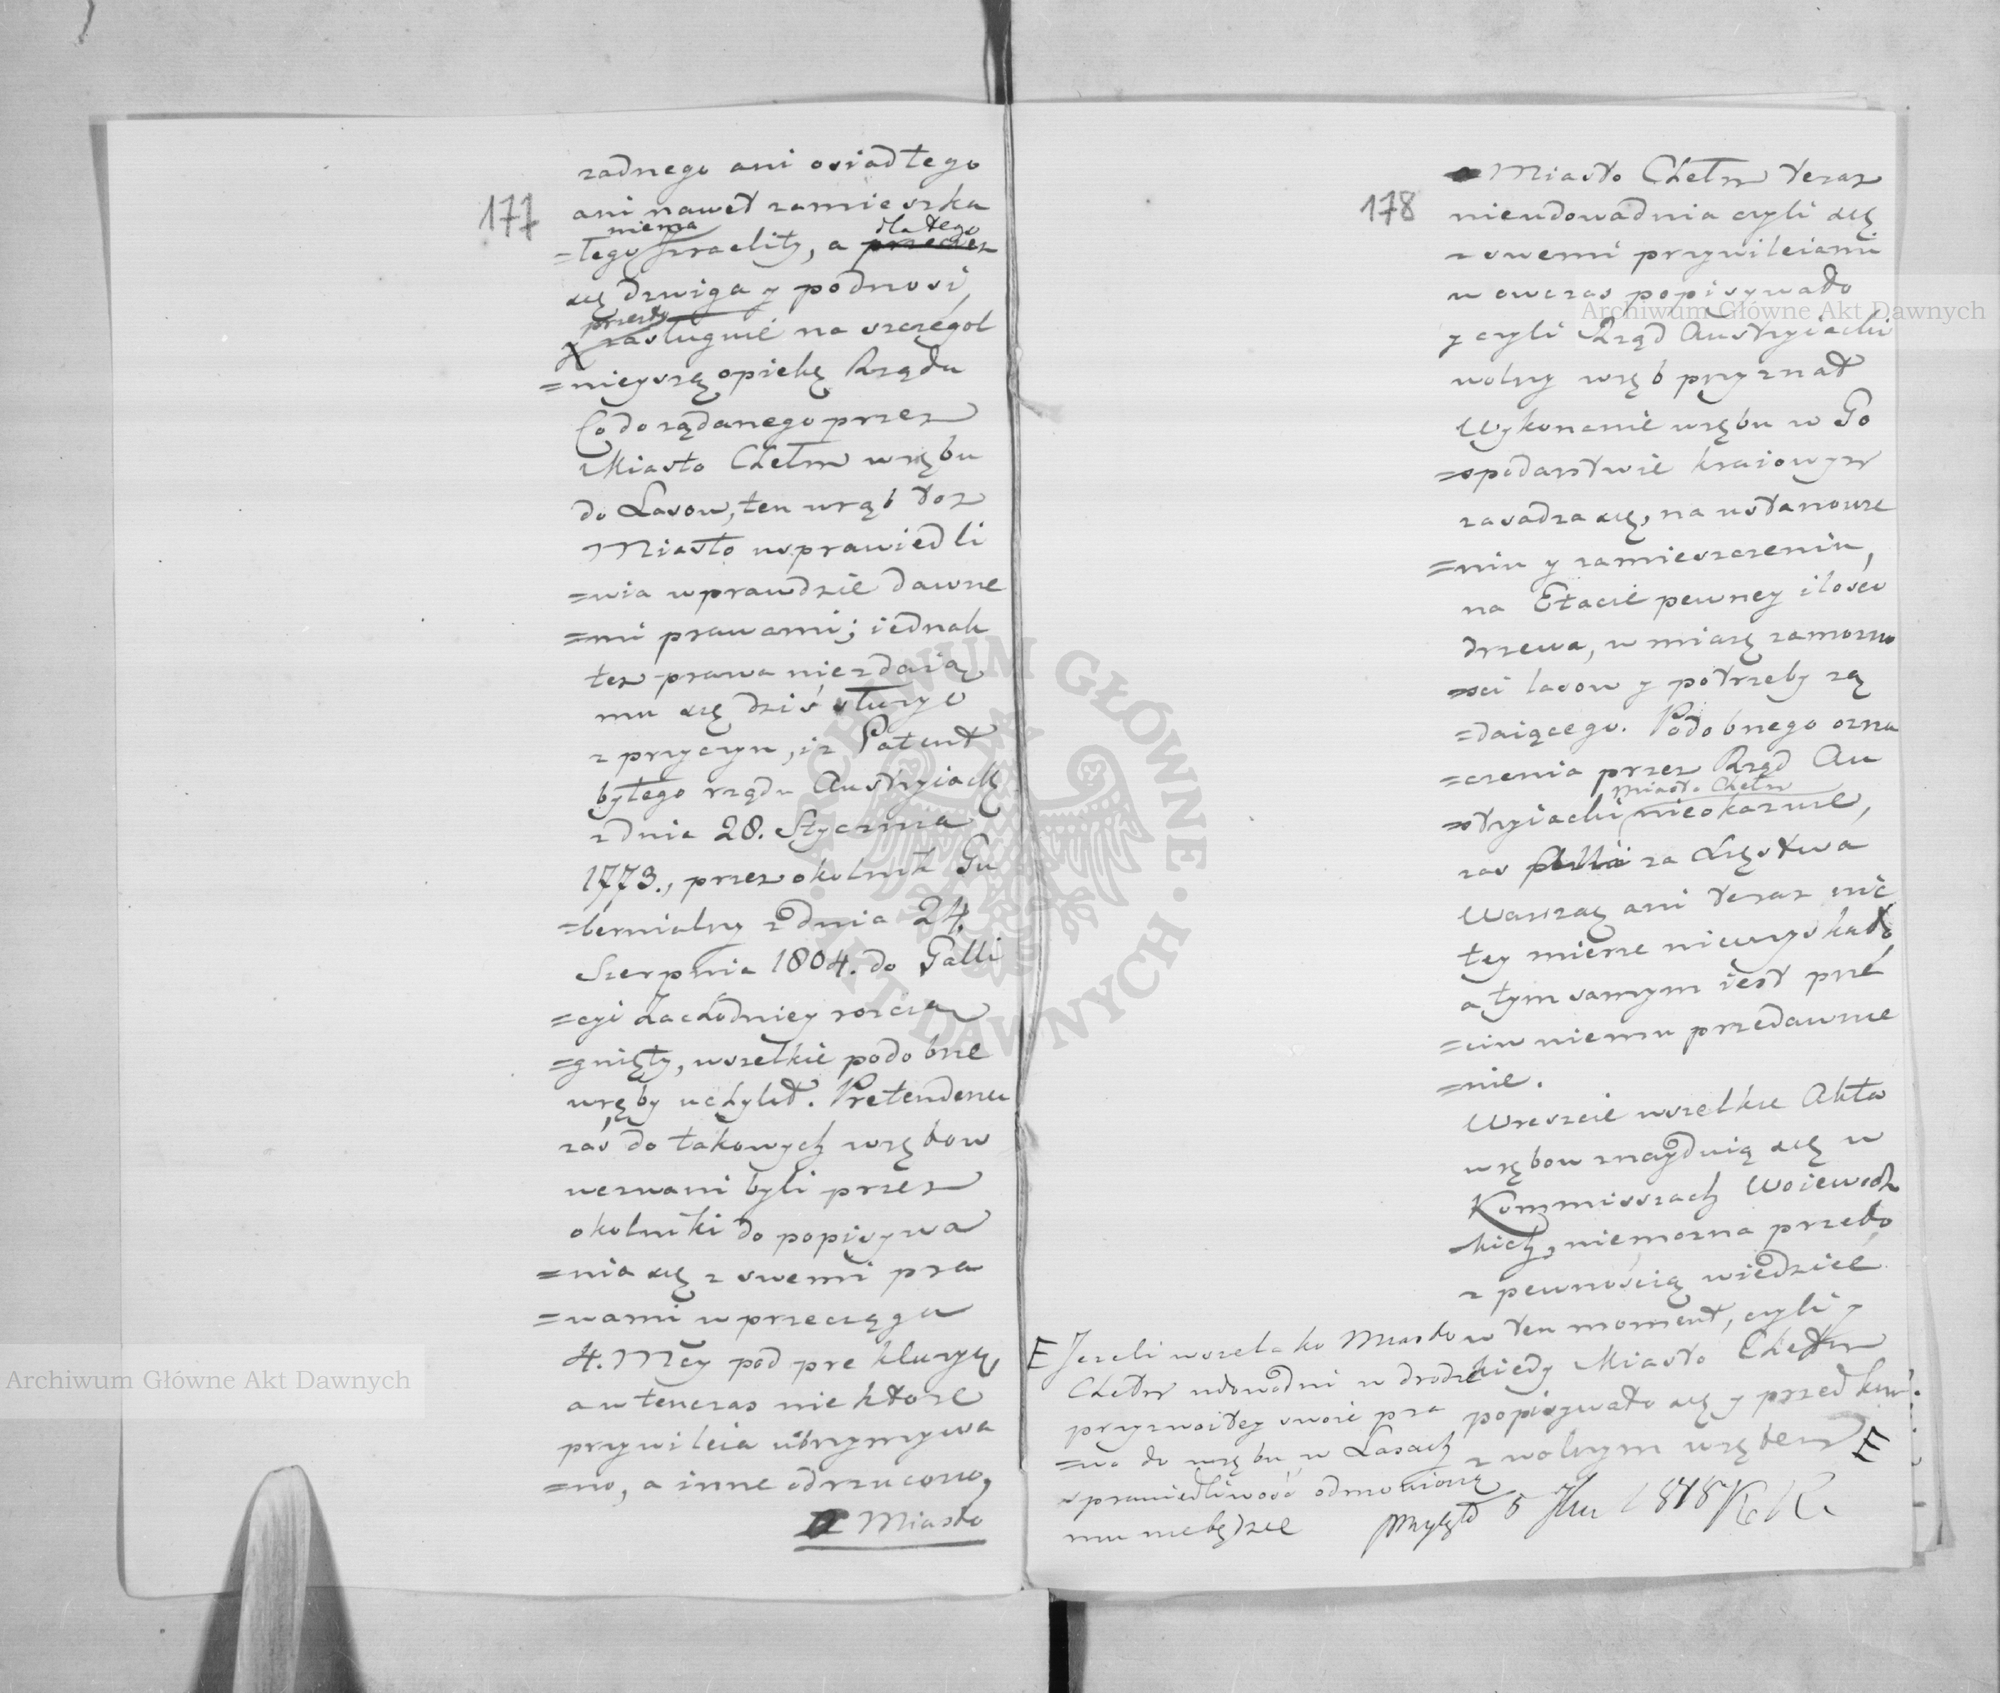 177
żadnego ani osiadłego
ani nawet zamieszka
niema dla tego
=łego Izraelity, a przeciez
się dzwiga y podnosi
przeto
y zasługuie na szczegol
=nieyszą opiekę Rządu
Co do żądanego przez
Miasto Chełm wrębu
do Lasow, ten wrąb toż
Miasto usprawiedli
=wia wprawdzie dawne
=mi prawami; iednak
też prawa niezdaią
mu się dziś służyć
z przyczyn, iż Patent
byłego rządu Austryiack
z dnia 28. Stycznia
1773., przez okolnik Gu
=bernialny z dnia 24
Szerpnia 1804. do Galli
=cyi Zachodniey rością
=gnięty, wszelkie podobne
wręby uchylił. Pretendenci
zaś do takowych wrębow
wezwani byli przez
okolniki do popisywa
=nia się z swemi pra
=wami w przeciągu
4. Mcy pod prekluzyą,
a wtenczas niektore
przywileia utrzymywa
=no, a inne odrzucono,
a Miasto
178
a Miasto Chełm teraz
nieudowadnia czyli się
z swemi przywileiami
w owczas popisywało
y czyli Rząd Austryiacki
wolny wrąb przyznał
Wykonanie wrębu w Go
=spodarstwie kraiowym
zasadza się, na ustanowie
=niu y zamieszczeniu,
na Etacie pewney ilości
drzewa, w miarę zamożno
=sci lasow y potrzeby żą
=daiącego. Podobnego ozna
=czenia przez Rząd Au
Miasto Chełm
=stryiacki nieokazuie,
zas za Xięstwa
Warszag ani teraz nic
tey mierze niewyskało
a tym samym iest prze
=ciw niemu przedawnie
=nie.
Wreszcie wszelkie Akta
wrębow znayduią się w
Kommissyach Woiewodz
kich, niemożna przeto
z pewnością wiedzieć
w ten moment, czyli y
kiedy Miasto Chełm
popisywało się y przed kim
z wolnym wrębem E
E Jezeli wszelako Miasto
Chełm udowodni w drodze
przyzwoitey swoie pra
=wo do wrębu w Lasach
sprawiedliwość odmowioną
mu niebędzie
przyięto 5 1818
Archiwum Główne Akt Dawnych
Archiwum Główne Akt Dawnych
Archiwum Główne Akt Dawnych
ARCHIWUM GŁÓWNE · AKT DAWNYCH ·